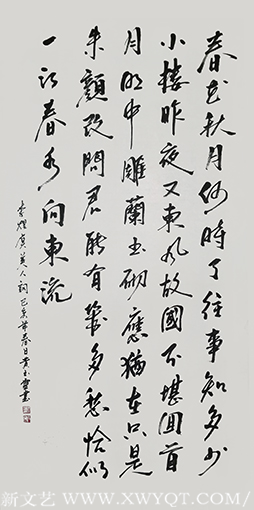 春花秋月何時了往事知多少
小樓昨夜又東风故國不堪回首
月明中雕蘭玉砌應猶在只是
朱顏改問君能有幾多愁恰似
一江春水向東流
李煜虞美人詞 春日 書
新文艺 WWW.XWYQT.COM/